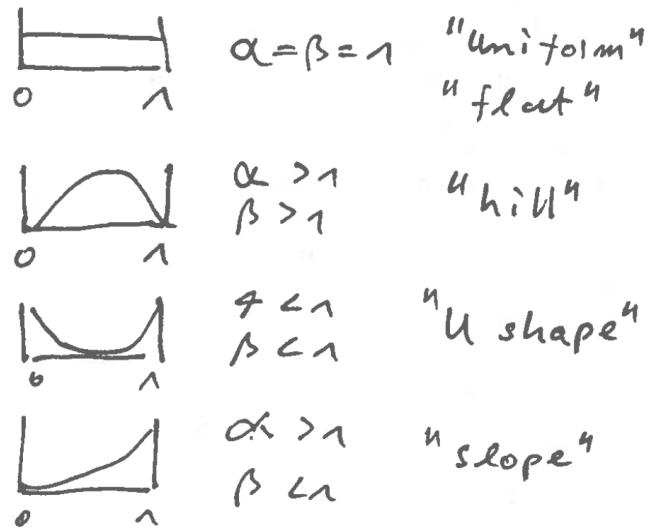 α = β = 1 "uniform"
"flat"
0 1
α > 1
β > 1 "hill"
0 1
α < 1
β < 1 "U shape"
0 1
α > 1
β < 1 "slope"
0 1